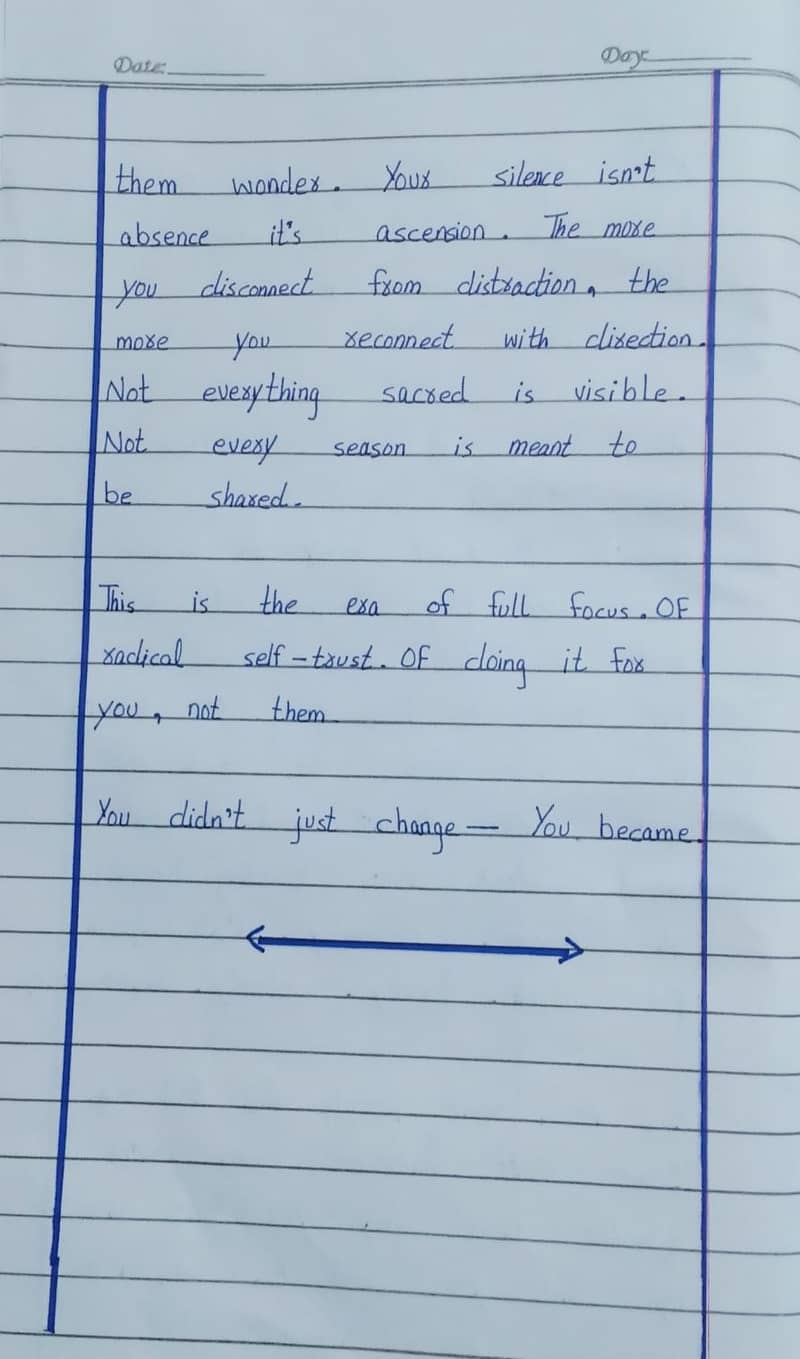 Date: Day:
them wonder. Your silence isn't
absence it's ascension. The more
you disconnect from distraction, the
more you reconnect with direction.
Not everything sacred is visible.
Not every season is meant to
be shared.
This is the era of full focus. OF
radical self-trust. OF doing it for
you, not them
You didn't just change — You became.